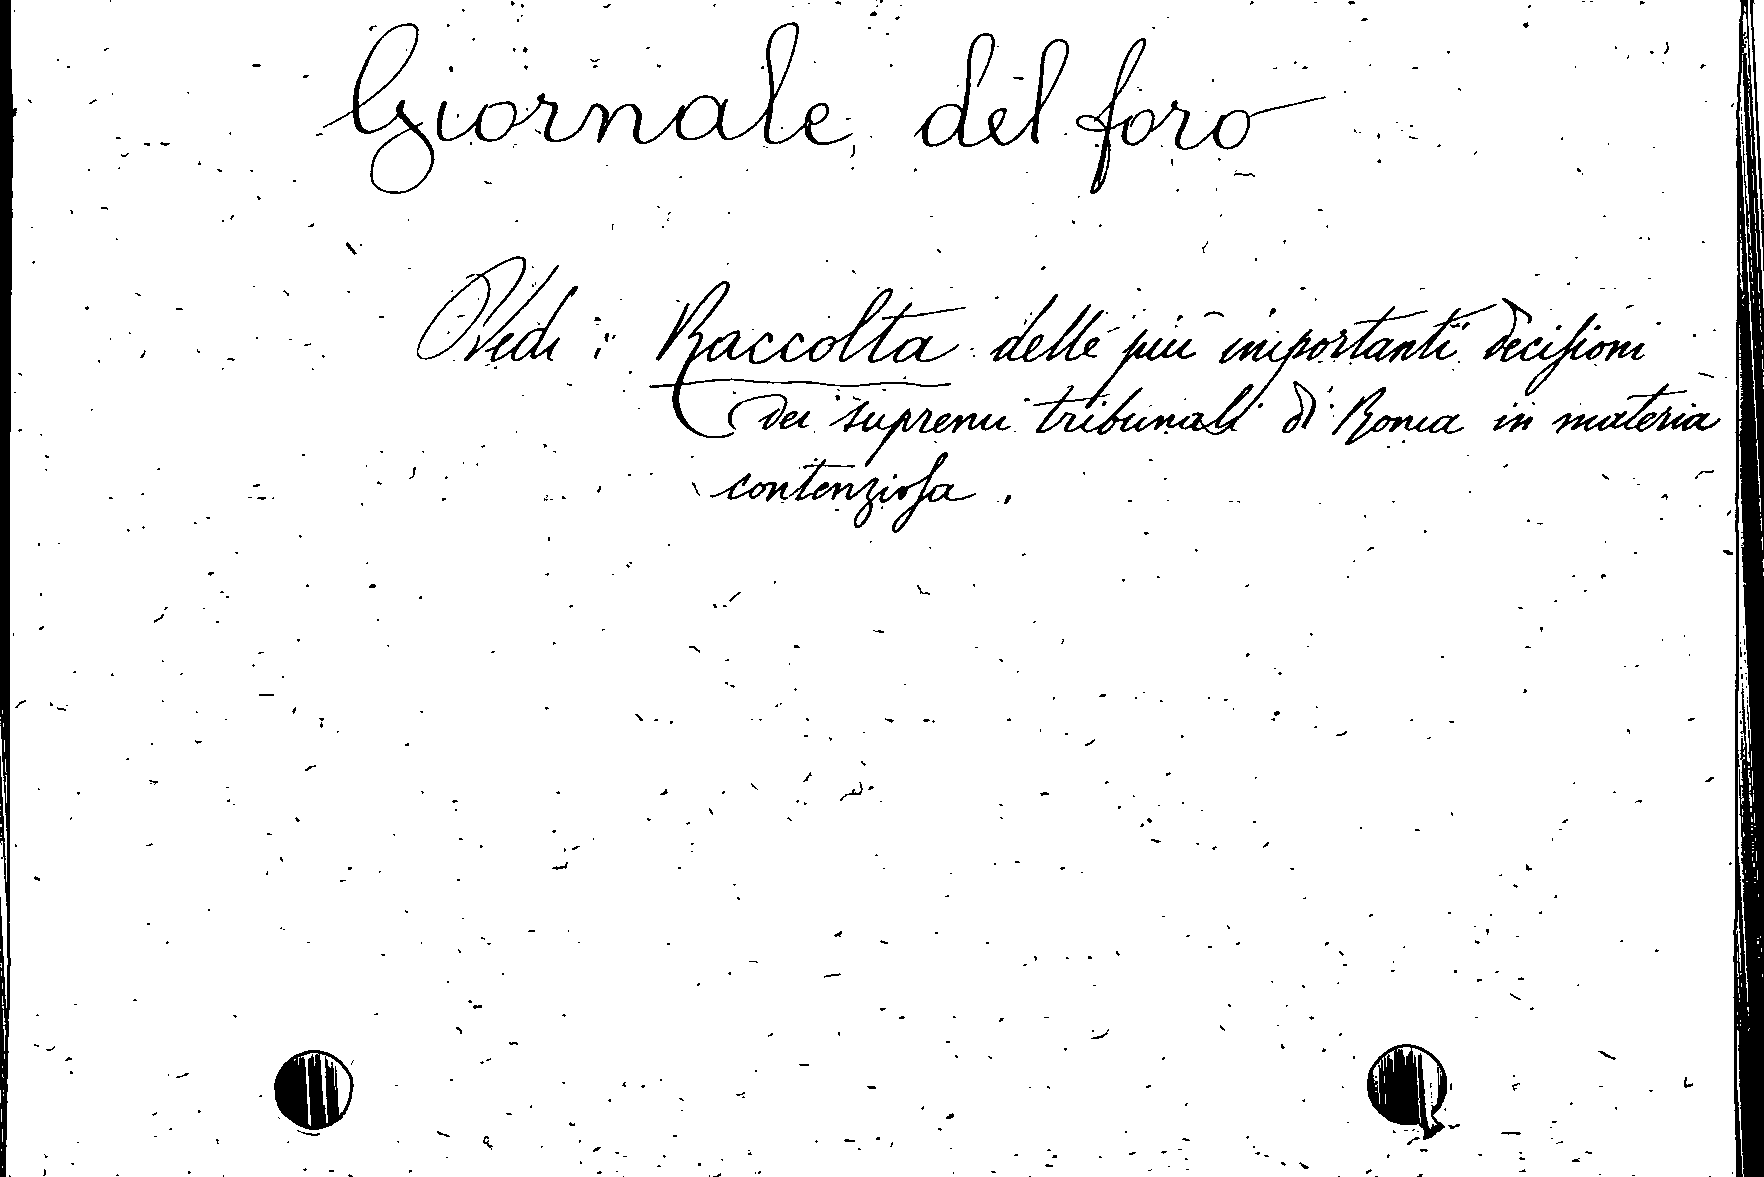 Giornale del foro
Vedi: Raccolta delle più importanti decisioni
dei supremi tribunali di Roma in materia
contenziosa.